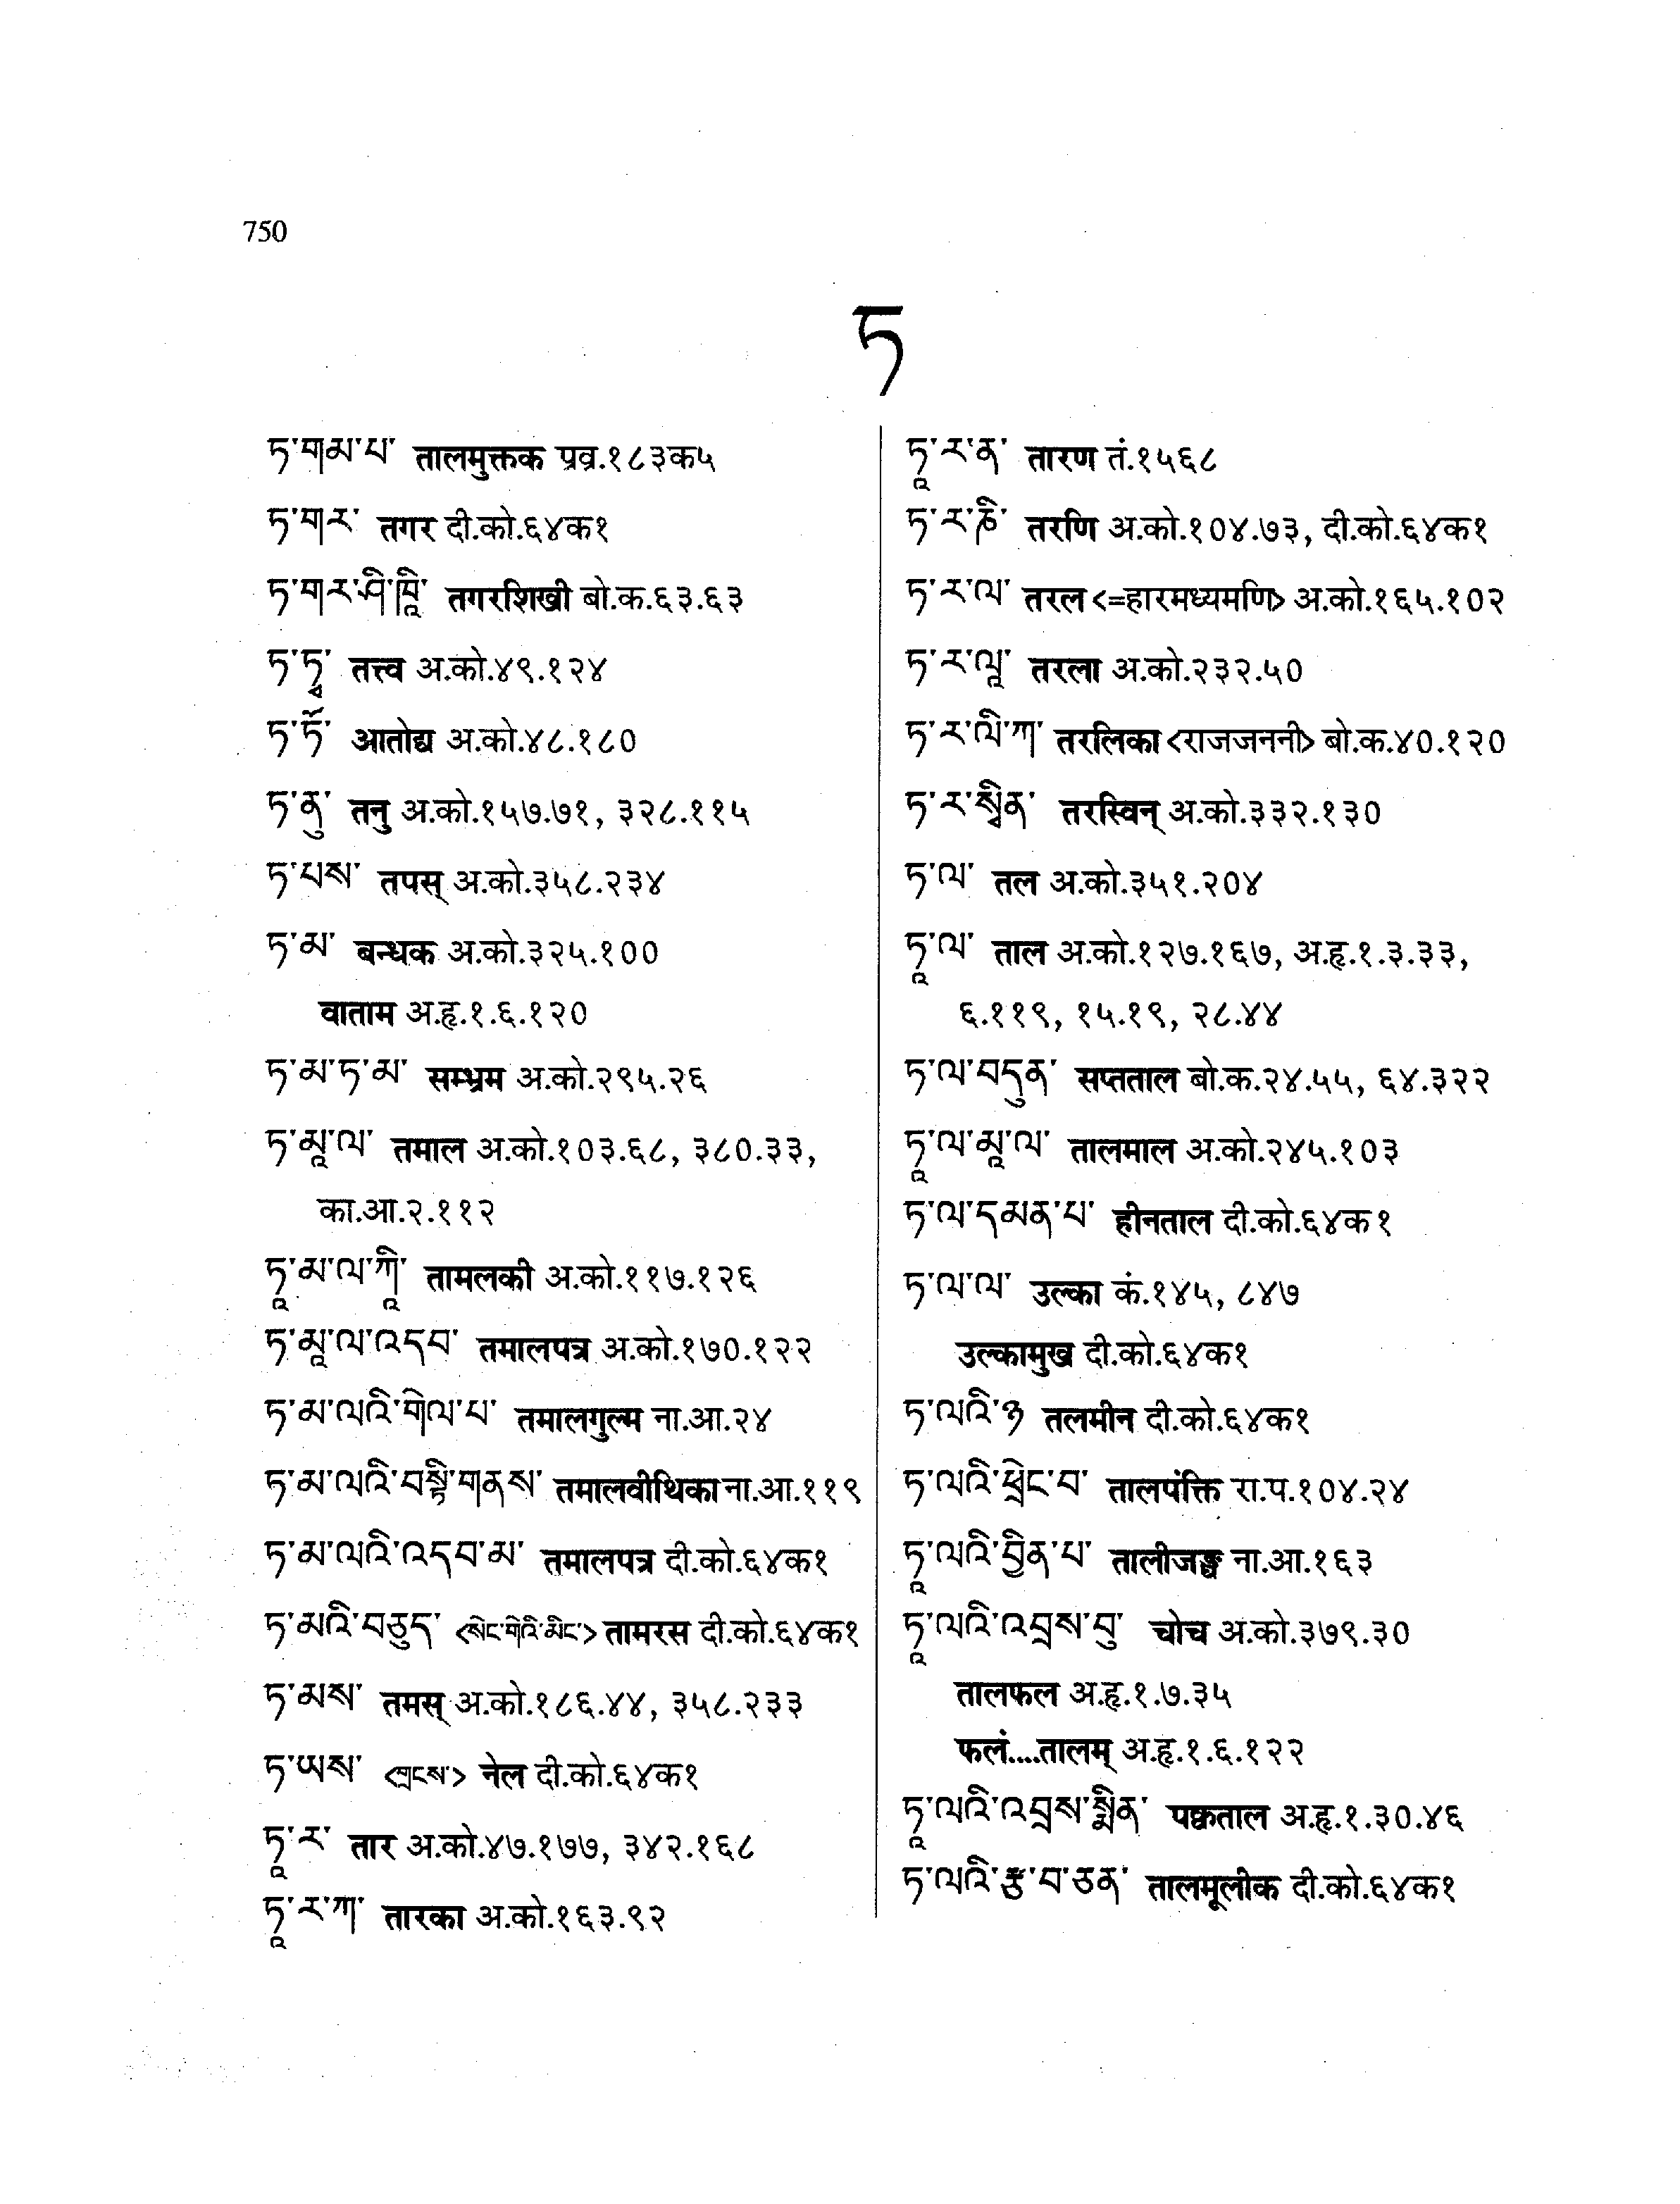 750
ཏ
ཏ་གམ་པ་ तालमुक्तक प्रव्र.१८३क५
ཏ་གར་ तगर दी.को.६४क१
ཏ་གར་ཤི་ཁཱི་ तगरशिखी बो.क.६३.६३
ཏ་ཏྭ་ तत्त्व अ.को.४९.१२४
ཏ་ཏོ་ आतोद्य अ.को.४८.१८०
ཏ་ནུ་ तनु अ.को.१५७.७१, ३२८.११५
ཏ་པས་ तपस् अ.को.३५८.२३४
ཏ་མ་ बन्धक अ.को.३२५.१००
वाताम अ.हृ.१.६.१२०
ཏ་མ་ཏ་མ་ सम्भ्रम अ.को.२९५.२६
ཏ་མཱ་ལ་ तमाल अ.को.१०३.६८, ३८०.३३,
का.आ.२.११२
ཏཱ་མ་ལ་ཀཱི་ तामलकी अ.को.११७.१२६
ཏ་མཱ་ལ་འདབ་ तमालपत्र अ.को.१७०.१२२
ཏ་མ་ལའི་གེལ་པ་ तमालगुल्म ना.आ.२४
ཏ་མ་ལའི་བསྟི་གནས་ तमालवीथिका ना.आ.११९
ཏ་མ་ལའི་འདབ་མ་ तमालपत्र दी.को.६४क१
ཏ་མའི་བཅུད་ <སེང་གེའི་མིང་> तामरस दी.को.६४क१
ཏ་མས་ तमस् अ.को.१८६.४४, ३५८.२३३
ཏ་ཡས་ <གྲངས་> नेल दी.को.६४क१
ཏཱ་ར་ तार अ.को.४७.१७७, ३४२.१६८
ཏཱ་ར་ཀ་ तारका अ.को.१६३.९२
ཏཱ་ར་ན་ तारण तं.१५६८
ཏ་ར་ཎི་ तरणि अ.को.१०४.७३, दी.को.६४क१
ཏ་ར་ལ་ तरल <=हारमध्यमणि> अ.को.१६५.१०२
ཏ་ར་ལཱ་ तरला अ.को.२३२.५०
ཏ་ར་ལི་ཀ་ तरलिका <राजजननी> बो.क.४०.१२०
ཏ་ར་སྭིན་ तरस्विन् अ.को.३३२.१३०
ཏ་ལ་ तल अ.को.३५१.२०४
ཏཱ་ལ་ ताल अ.को.१२७.१६७, अ.हृ.१.३.३३,
६.११९, १५.१९, २८.४४
ཏ་ལ་བདུན་ सप्तताल बो.क.२४.५५, ६४.३२२
ཏཱ་ལ་མཱ་ལ་ तालमाल अ.को.२४५.१०३
ཏ་ལ་དམན་པ་ हीनताल दी.को.६४क१
ཏ་ལ་ལ་ उल्का कं.१४५, ८४७
उल्कामुख दी.को.६४क१
ཏ་ལའི་ཉ तलमीन दी.को.६४क१
ཏ་ལའི་ཕྲེང་བ་ तालपंक्ति रा.प.१०४.२४
ཏཱ་ལའི་བྱིན་པ་ तालीजङ्घ ना.आ.१६३
ཏཱ་ལའི་འབྲས་བུ་ चोच अ.को.३७९.३०
तालफल अ.हृ.१.७.३५
फलं....तालम् अ.हृ.१.६.१२२
ཏཱ་ལའི་འབྲས་སྨིན་ पक्वताल अ.हृ.१.३०.४६
ཏ་ལའི་རྩ་བ་ཅན་ तालमूलीक दी.को.६४क१